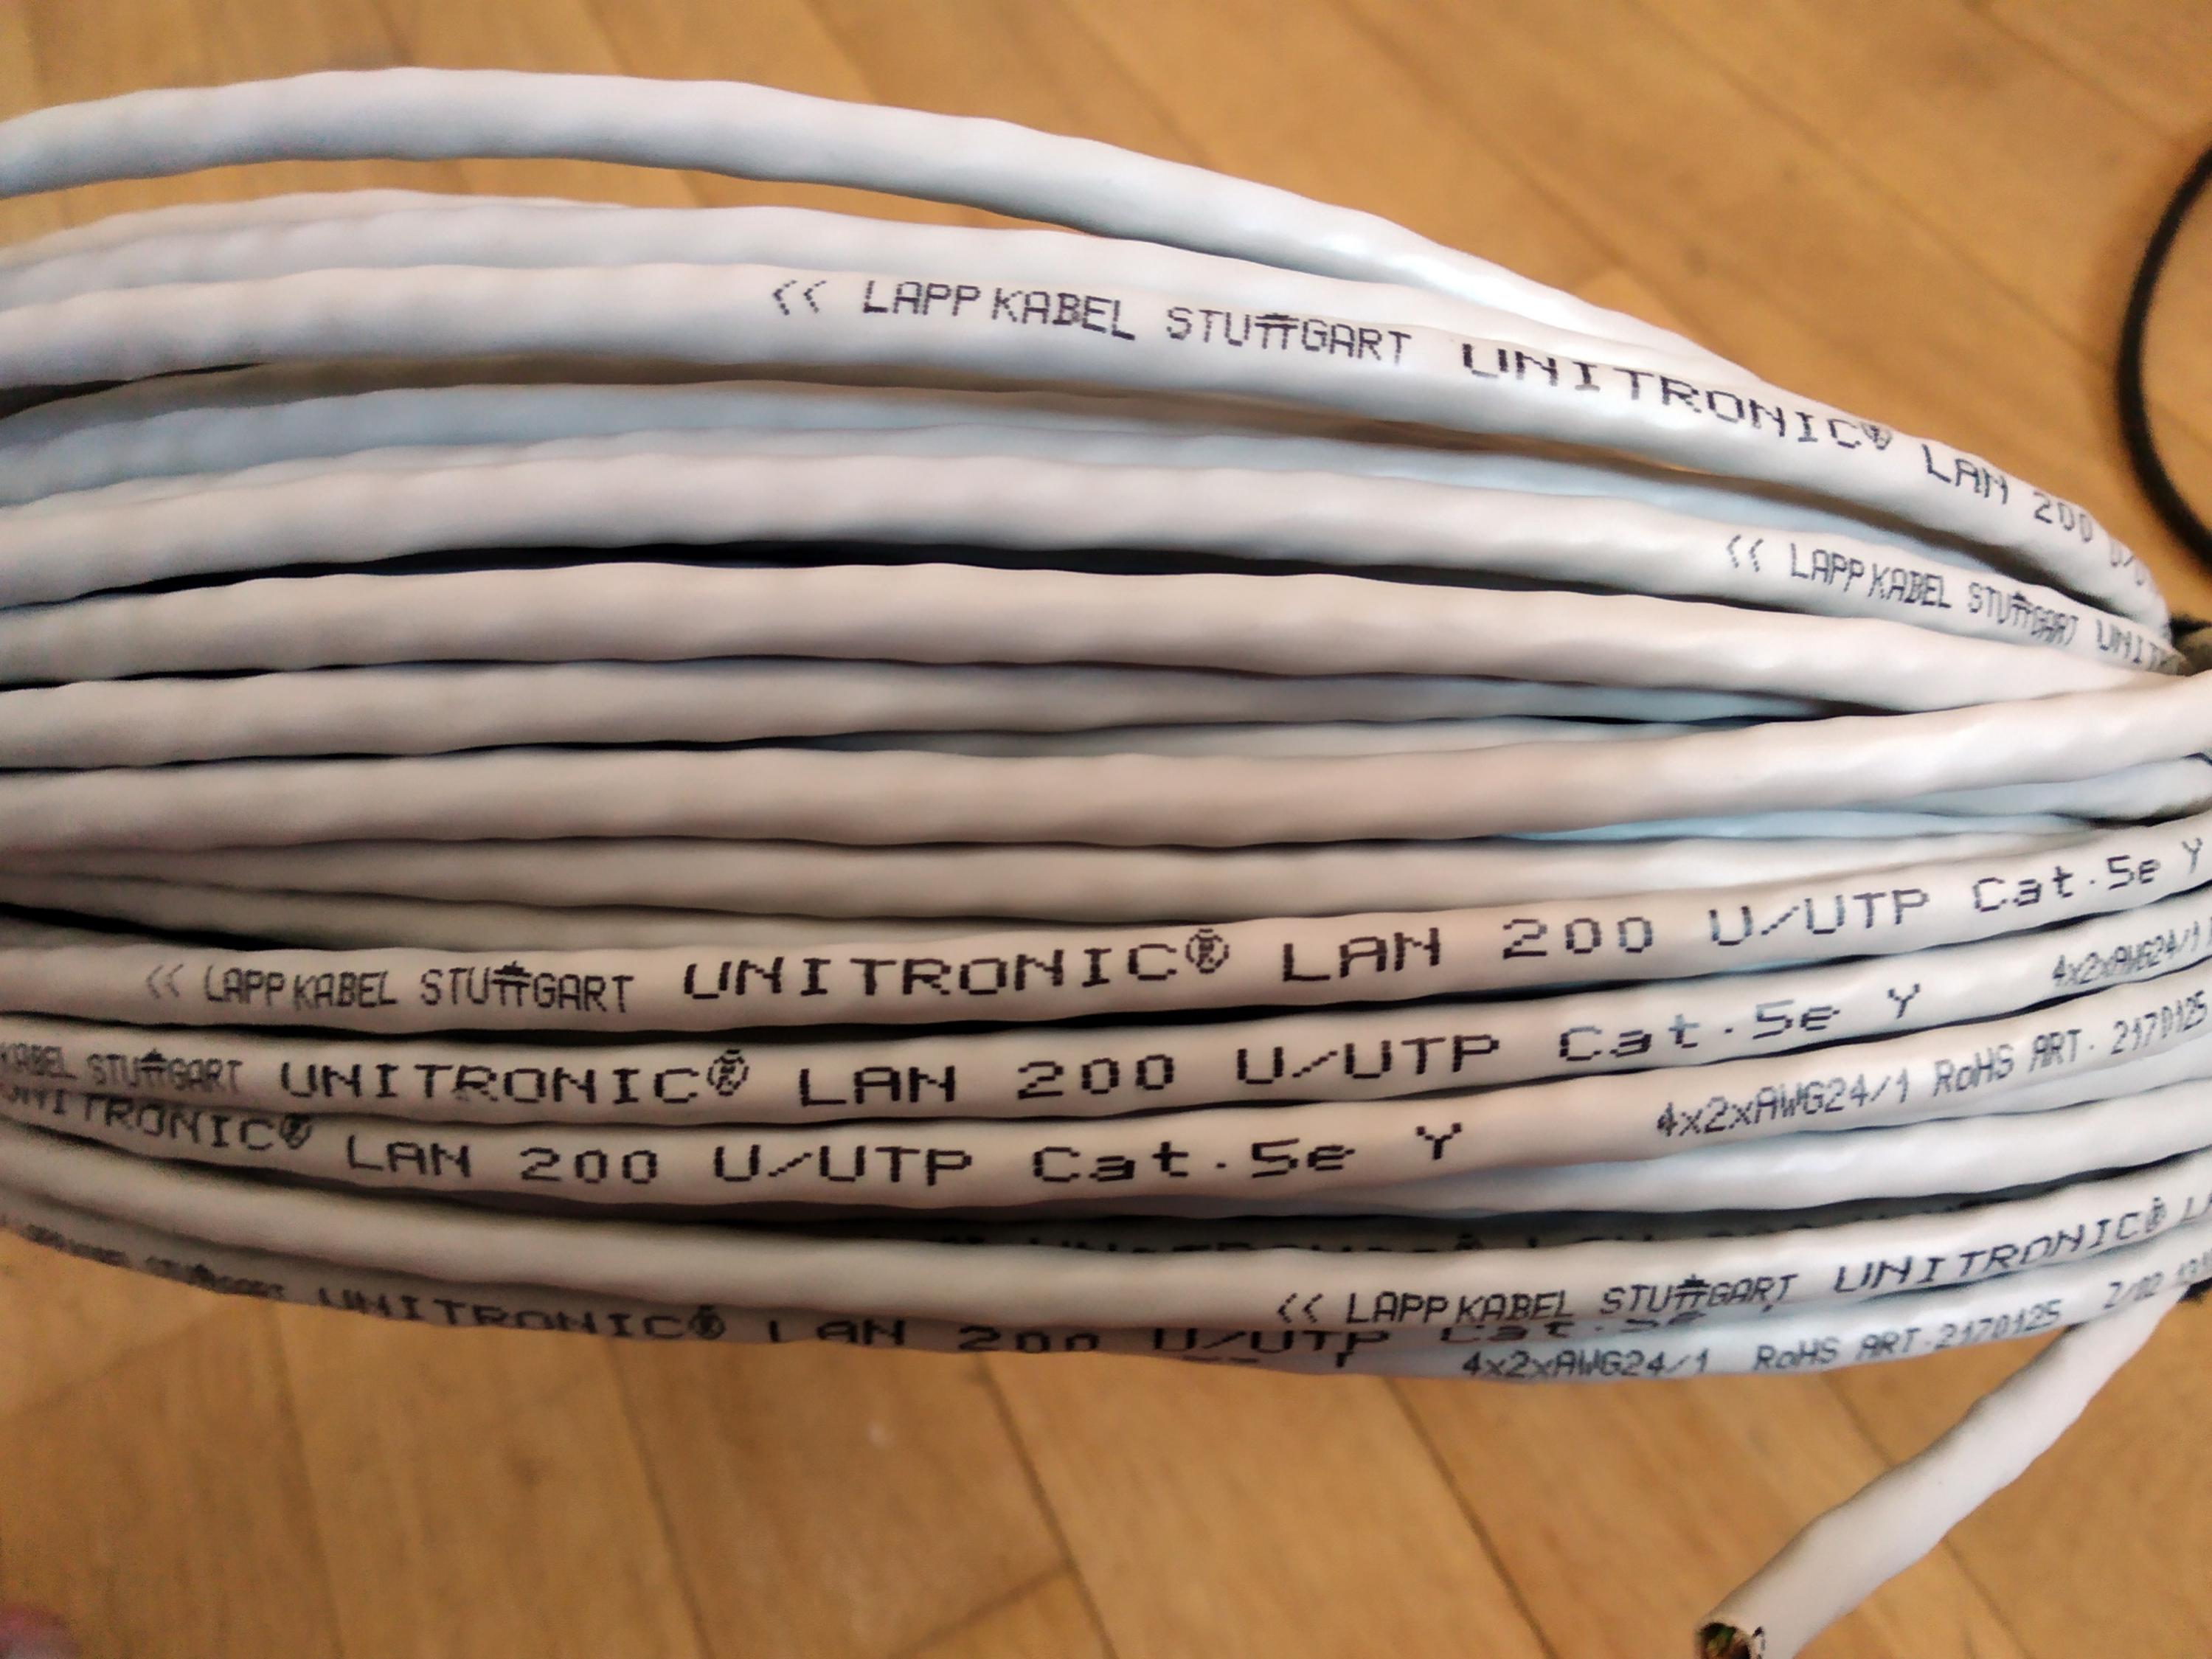 << LAPP KABEL STUTTGART UNITRONIC® LAN 200
<< LAPP KABEL STUTTGART
<< LAPP KABEL STUTTGART UNITRONIC® LAN 200 U/UTP Cat.5e Y
KABEL STUTTGART UNITRONIC® LAN 200 U/UTP Cat.5e Y 4x2xAWG24/1
UNITRONIC® LAN 200 U/UTP Cat.5e Y 4x2xAWG24/1 RoHS ART. 2170125
<< LAPP KABEL STUTTGART UNITRONIC®
STUTTGART UNITRONIC® LAN 200 U/UTP Cat.5e Y 4x2xAWG24/1 RoHS ART.2170125